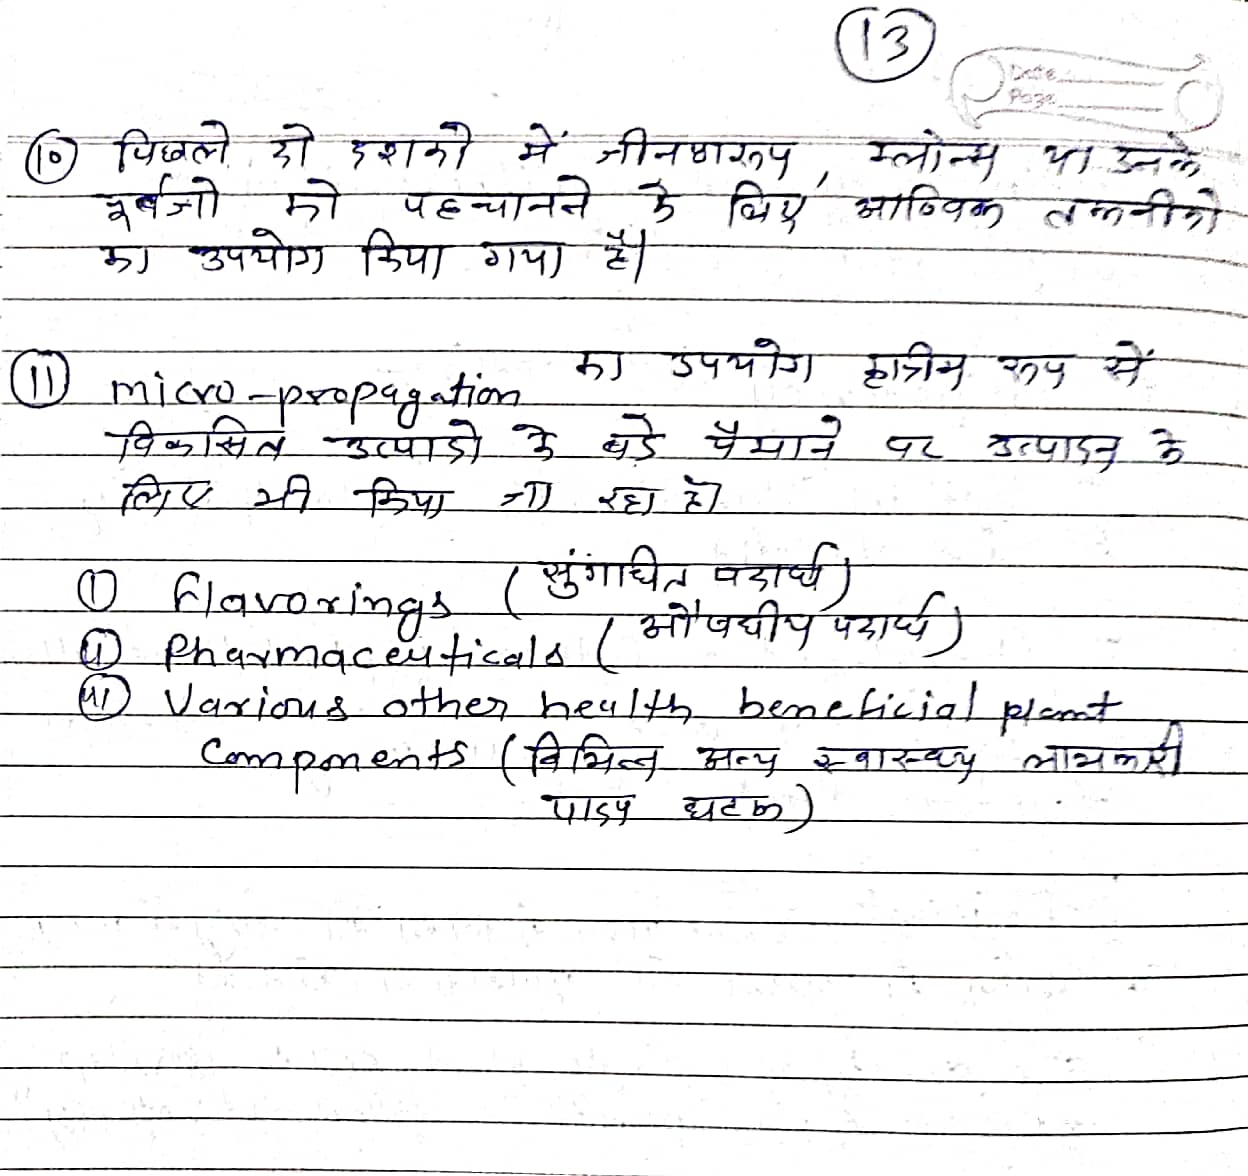 13
Date
Page
⑩ पिछले दो दशको में जीनप्रारुप, क्लोन्स या उनके
पूर्वजो को पहचानने के लिए आण्विक तकनीको
का उपयोग किया गया है।
⑪ micro-propagation का उपयोग कृत्रीम रूप से
विकसित उत्पादो के बडे पैमाने पर उत्पादन के
लिए भी किया जा रहा है।
(i) Flavorings (सुंगाधित पदार्थ)
(ii) Pharmaceuticals (औषधीय पदार्थ)
(iii) Various other health beneficial plant
Components (विभिन्न अन्य स्वास्थ्य लाभकारी
पादप घटक)